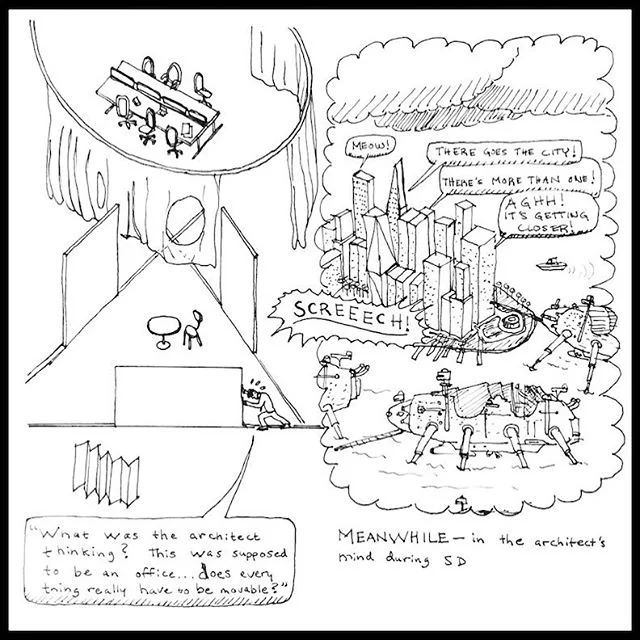 MEOW!
THERE GOES THE CITY!
THERE'S MORE THAN ONE!
AGHH!
IT'S GETTING
CLOSER!
SCREEECH!
"What was the architect
thinking? This was supposed
to be an office... does every
thing really have to be movable?"
MEANWHILE — in the architect's
mind during SD